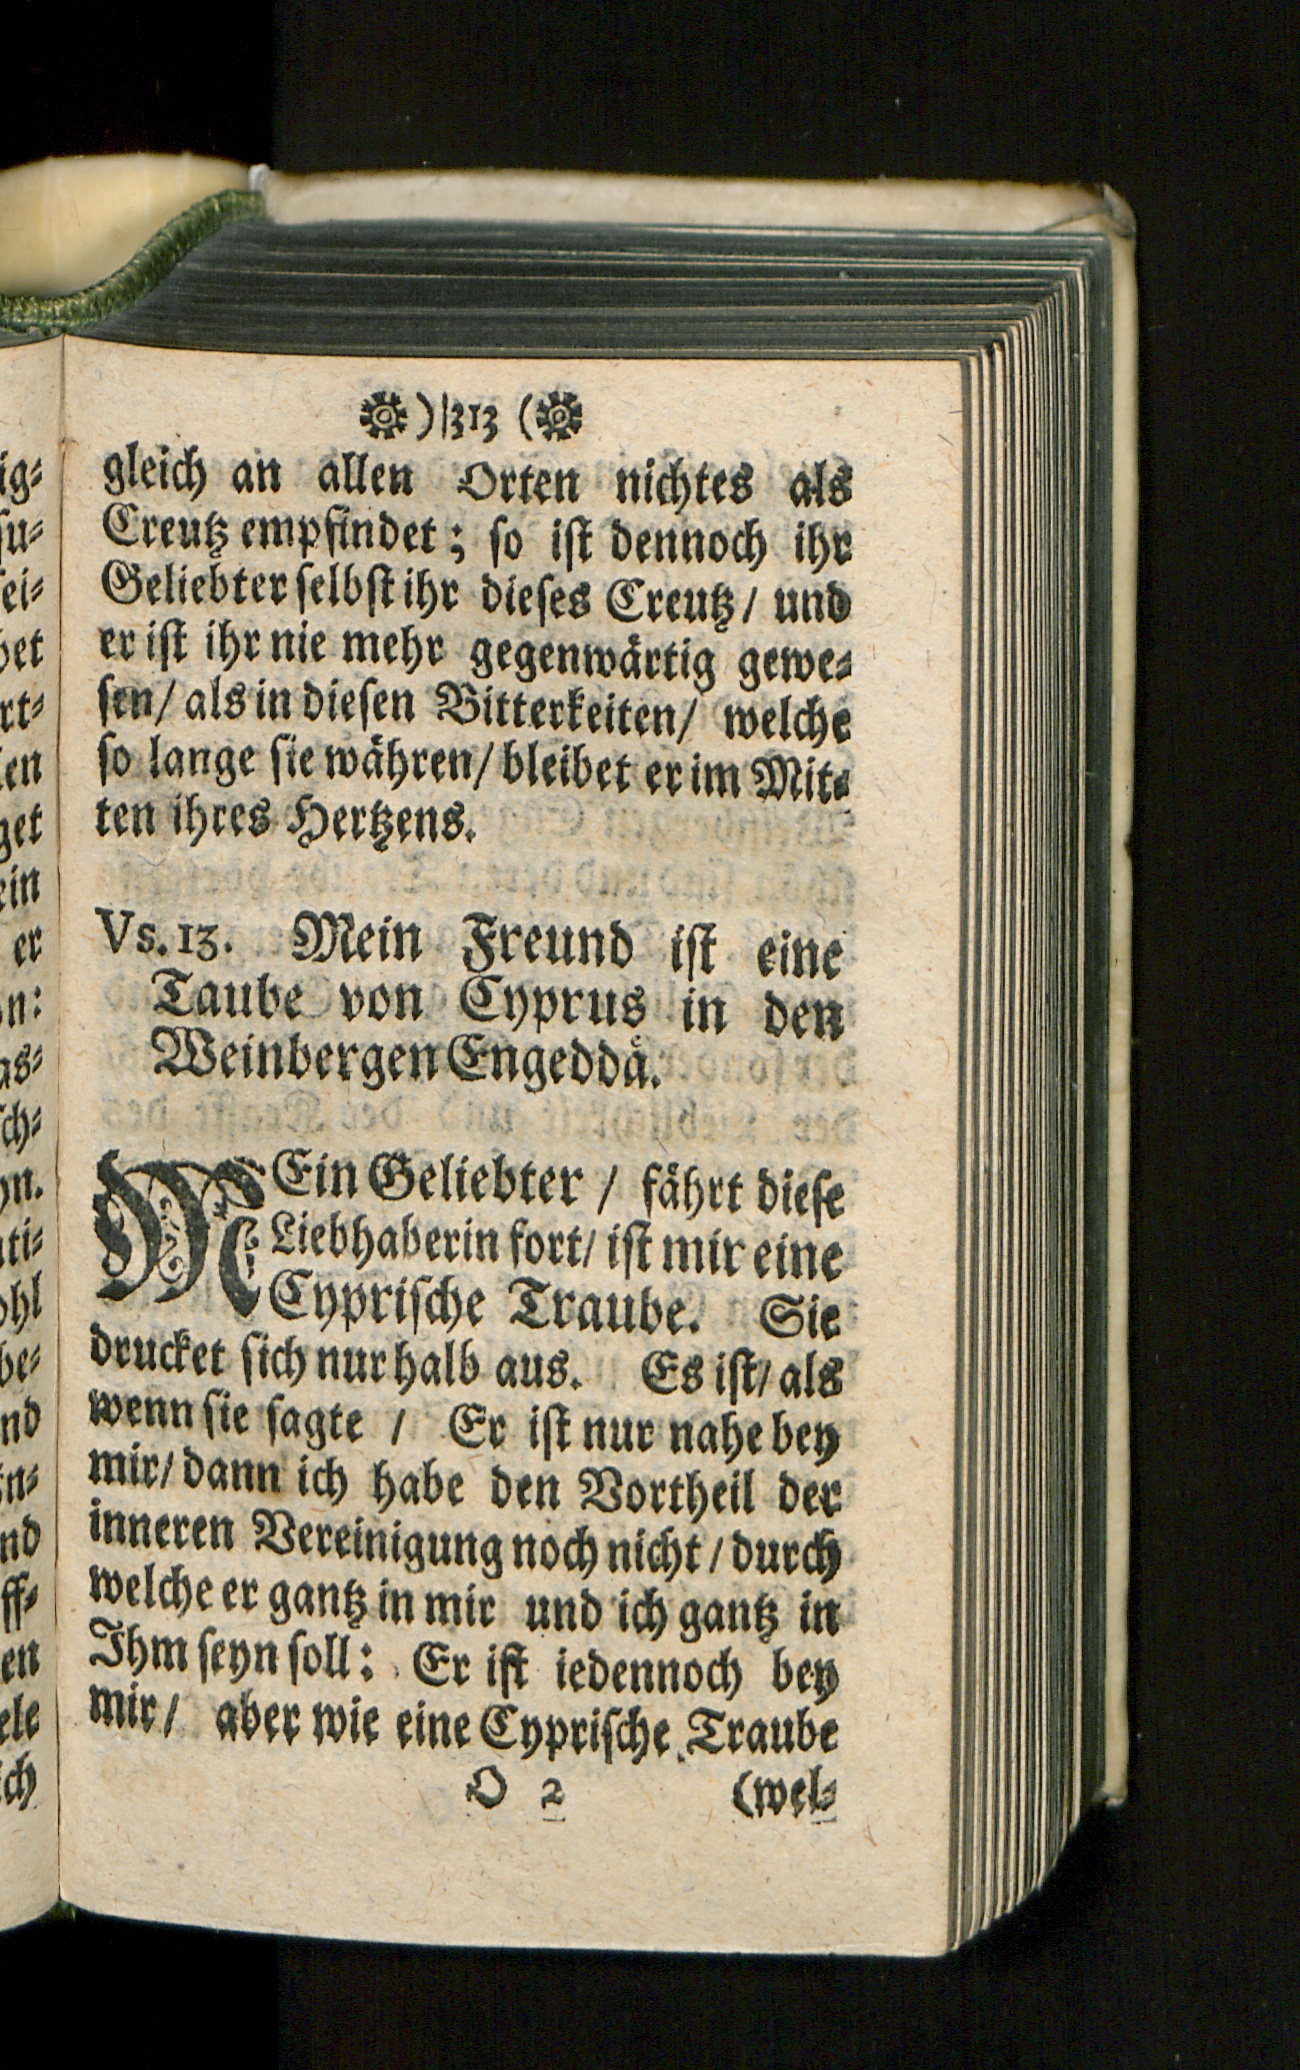 )313 (
gleich an allen Orten nichtes als
Creutz empfindet; so ist dennoch ihr
Geliebter selbst ihr dieses Creutz/ und
er ist ihr nie mehr gegenwärtig gewe-
sen/ als in diesen Bitterkeiten/ welche
so lange sie währen/ bleibet er im Mit-
ten ihres Hertzens.
Vs. 13. Mein Freund ist eine
Taube von Cyprus in den
Weinbergen Engeddä.
MEin Geliebter / fährt diese
Liebhaberin fort/ ist mir eine
Cyprische Traube. Sie
drucket sich nur halb aus. Es ist/ als
wenn sie sagte / Er ist nur nahe bey
mir/ dann ich habe den Vortheil der
inneren Vereinigung noch nicht / durch
welche er gantz in mir und ich gantz in
Ihm seyn soll: Er ist iedennoch bey
mir/ aber wie eine Cyprische Traube
O 2 (wel-